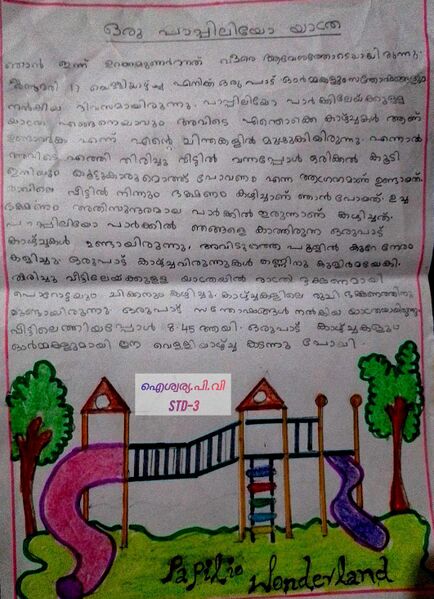 ഒരു പാപ്പിലിയോ യാത്ര
ഞാൻ ഇന്ന് ഉറങ്ങമുണർന്നത് വളരെ ആവേശത്തോടെയായിരുന്നു.
ജനുവരി 17 വെള്ളിയാഴ്ച്ച എനിക്ക് ഒരുപാട് ഓർമ്മകളും സന്തോഷങ്ങളും
നൽകിയ ദിവസമായിരുന്നു. പാപ്പിലിയോ പാർക്കിലേയ്ക്കുള്ള
യാത്ര എങ്ങനെയാവും അവിടെ എന്തൊക്കെ കാഴ്ച്ചകൾ ആണ്
ഉണ്ടാവുക എന്ന് എന്റെ ചിന്തകളിൽ മുഴുകിയിരുന്നു. എന്നാൽ
അവിടെ എത്തി തിരിച്ചു വീട്ടിൽ വന്നപ്പോൾ ഒരിക്കൽ കൂടി
ഇനിയും കൂട്ടുകാരുമൊത്ത് പോവണം എന്ന ആഗ്രഹമാണ് ഉണ്ടായത്.
രാവിലെ വീട്ടിൽ നിന്നും ഭക്ഷണം കഴിച്ചാണ് ഞാൻ പോയത്. ഉച്ച
ഭക്ഷണം അതിസുന്ദരമായ പാർക്കിൽ ഇരുന്നാണ് കഴിച്ചത്.
പാപ്പിലിയോ പാർക്കിൽ ഞങ്ങളെ കാത്തിരുന്ന ഒരുപാട്
കാഴ്ച്ചകൾ ഉണ്ടായിരുന്നു, അവിടുത്തെ പൂളിൽ കുറേ നേരം
കളിച്ചു. ഒരുപാട് കാഴ്ച്ചവിരുന്നുകൾ കണ്ണിനു കുളിർമയേകി.
തിരിച്ചു വീട്ടിലേയ്ക്കുള്ള യാത്രയിൽ രാത്രി ഭക്ഷണമായി
പൊറോട്ടയും ചിക്കനും കഴിച്ചു. കാഴ്ച്ചകളിലെ രുചി ഭക്ഷണത്തിനു
മുണ്ടായിരുന്നു. ഒരുപാട് സന്തോഷങ്ങൾ നൽകിയ യാത്രയായിരുന്നു.
വീട്ടിലെത്തിയപ്പോൾ 8:45 ആയി. ഒരുപാട് കാഴ്ച്ചകളും
ഓർമ്മകളുമായി ഈ വെള്ളിയാഴ്ച്ച കടന്നു പോയി.
ഐശ്വര്യ.പി.വി
STD-3
Papilio Wonderland